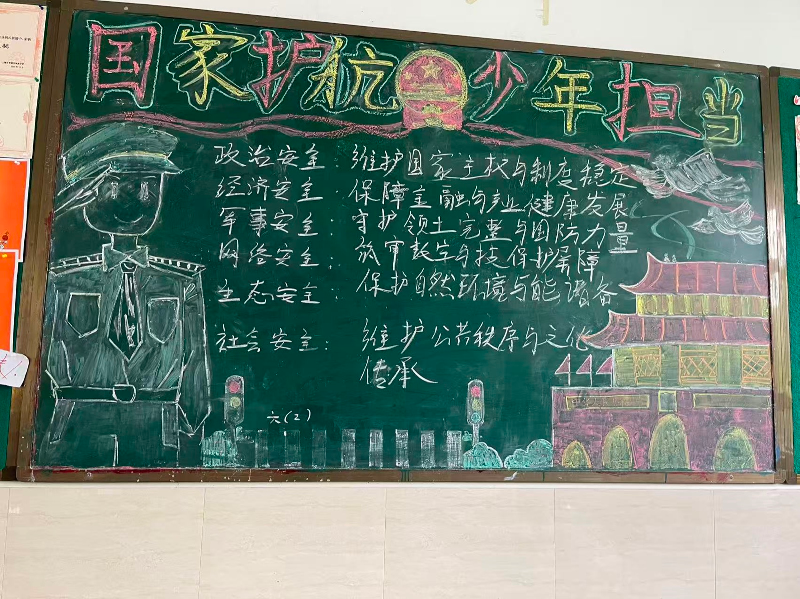 国家护航 少年担当
政治安全：维护国家主权与制度稳定
经济安全：保障金融与产业健康发展
军事安全：守护领土完整与国防力量
网络安全：筑牢数字与技保护屏障
生态安全：保护自然环境与能源储备
社会安全：维护公共秩序与文化
传承
六(2)